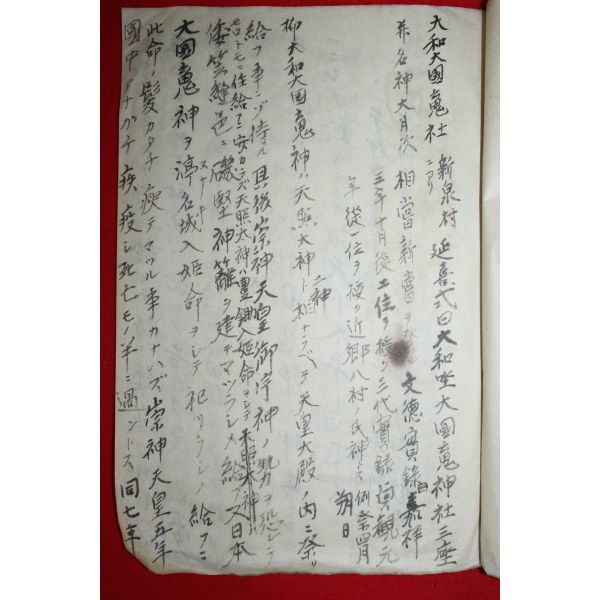 大和大國䰟社 新泉村ニアリ 延喜式曰大和坐大國䰟神社三座
並名神大月次相嘗新嘗 文德實錄曰嘉祥
三年十月從二位ヲ授ク三代實錄貞觀元
年從一位ヲ授ク近郷八村ノ氏神トス例祭四月朔日
抑大和大国䰟神ハ天照大神ト二神相ナラベテ天皇大殿ノ内ニ祭リ
給フ事ニゾ侍ル其後崇神天皇御宇神ノ勢ヲ恐レテ
モロトモニ住給フニ安カラズ天照太神ハ豊鍬入姫命ヲシテ
倭笠縫邑ニ磯堅神籬ヲ建テマツラシメ給フ又日本
大國䰟神ヲ渟名城入姫命ヲシテ祀ツラシメ給フニ
此命ノ髪カタチ痩テマツル事カナハズ崇神天皇五年
國中ナガチ疾疫シ死亡モノ半ニ過ントス同七年